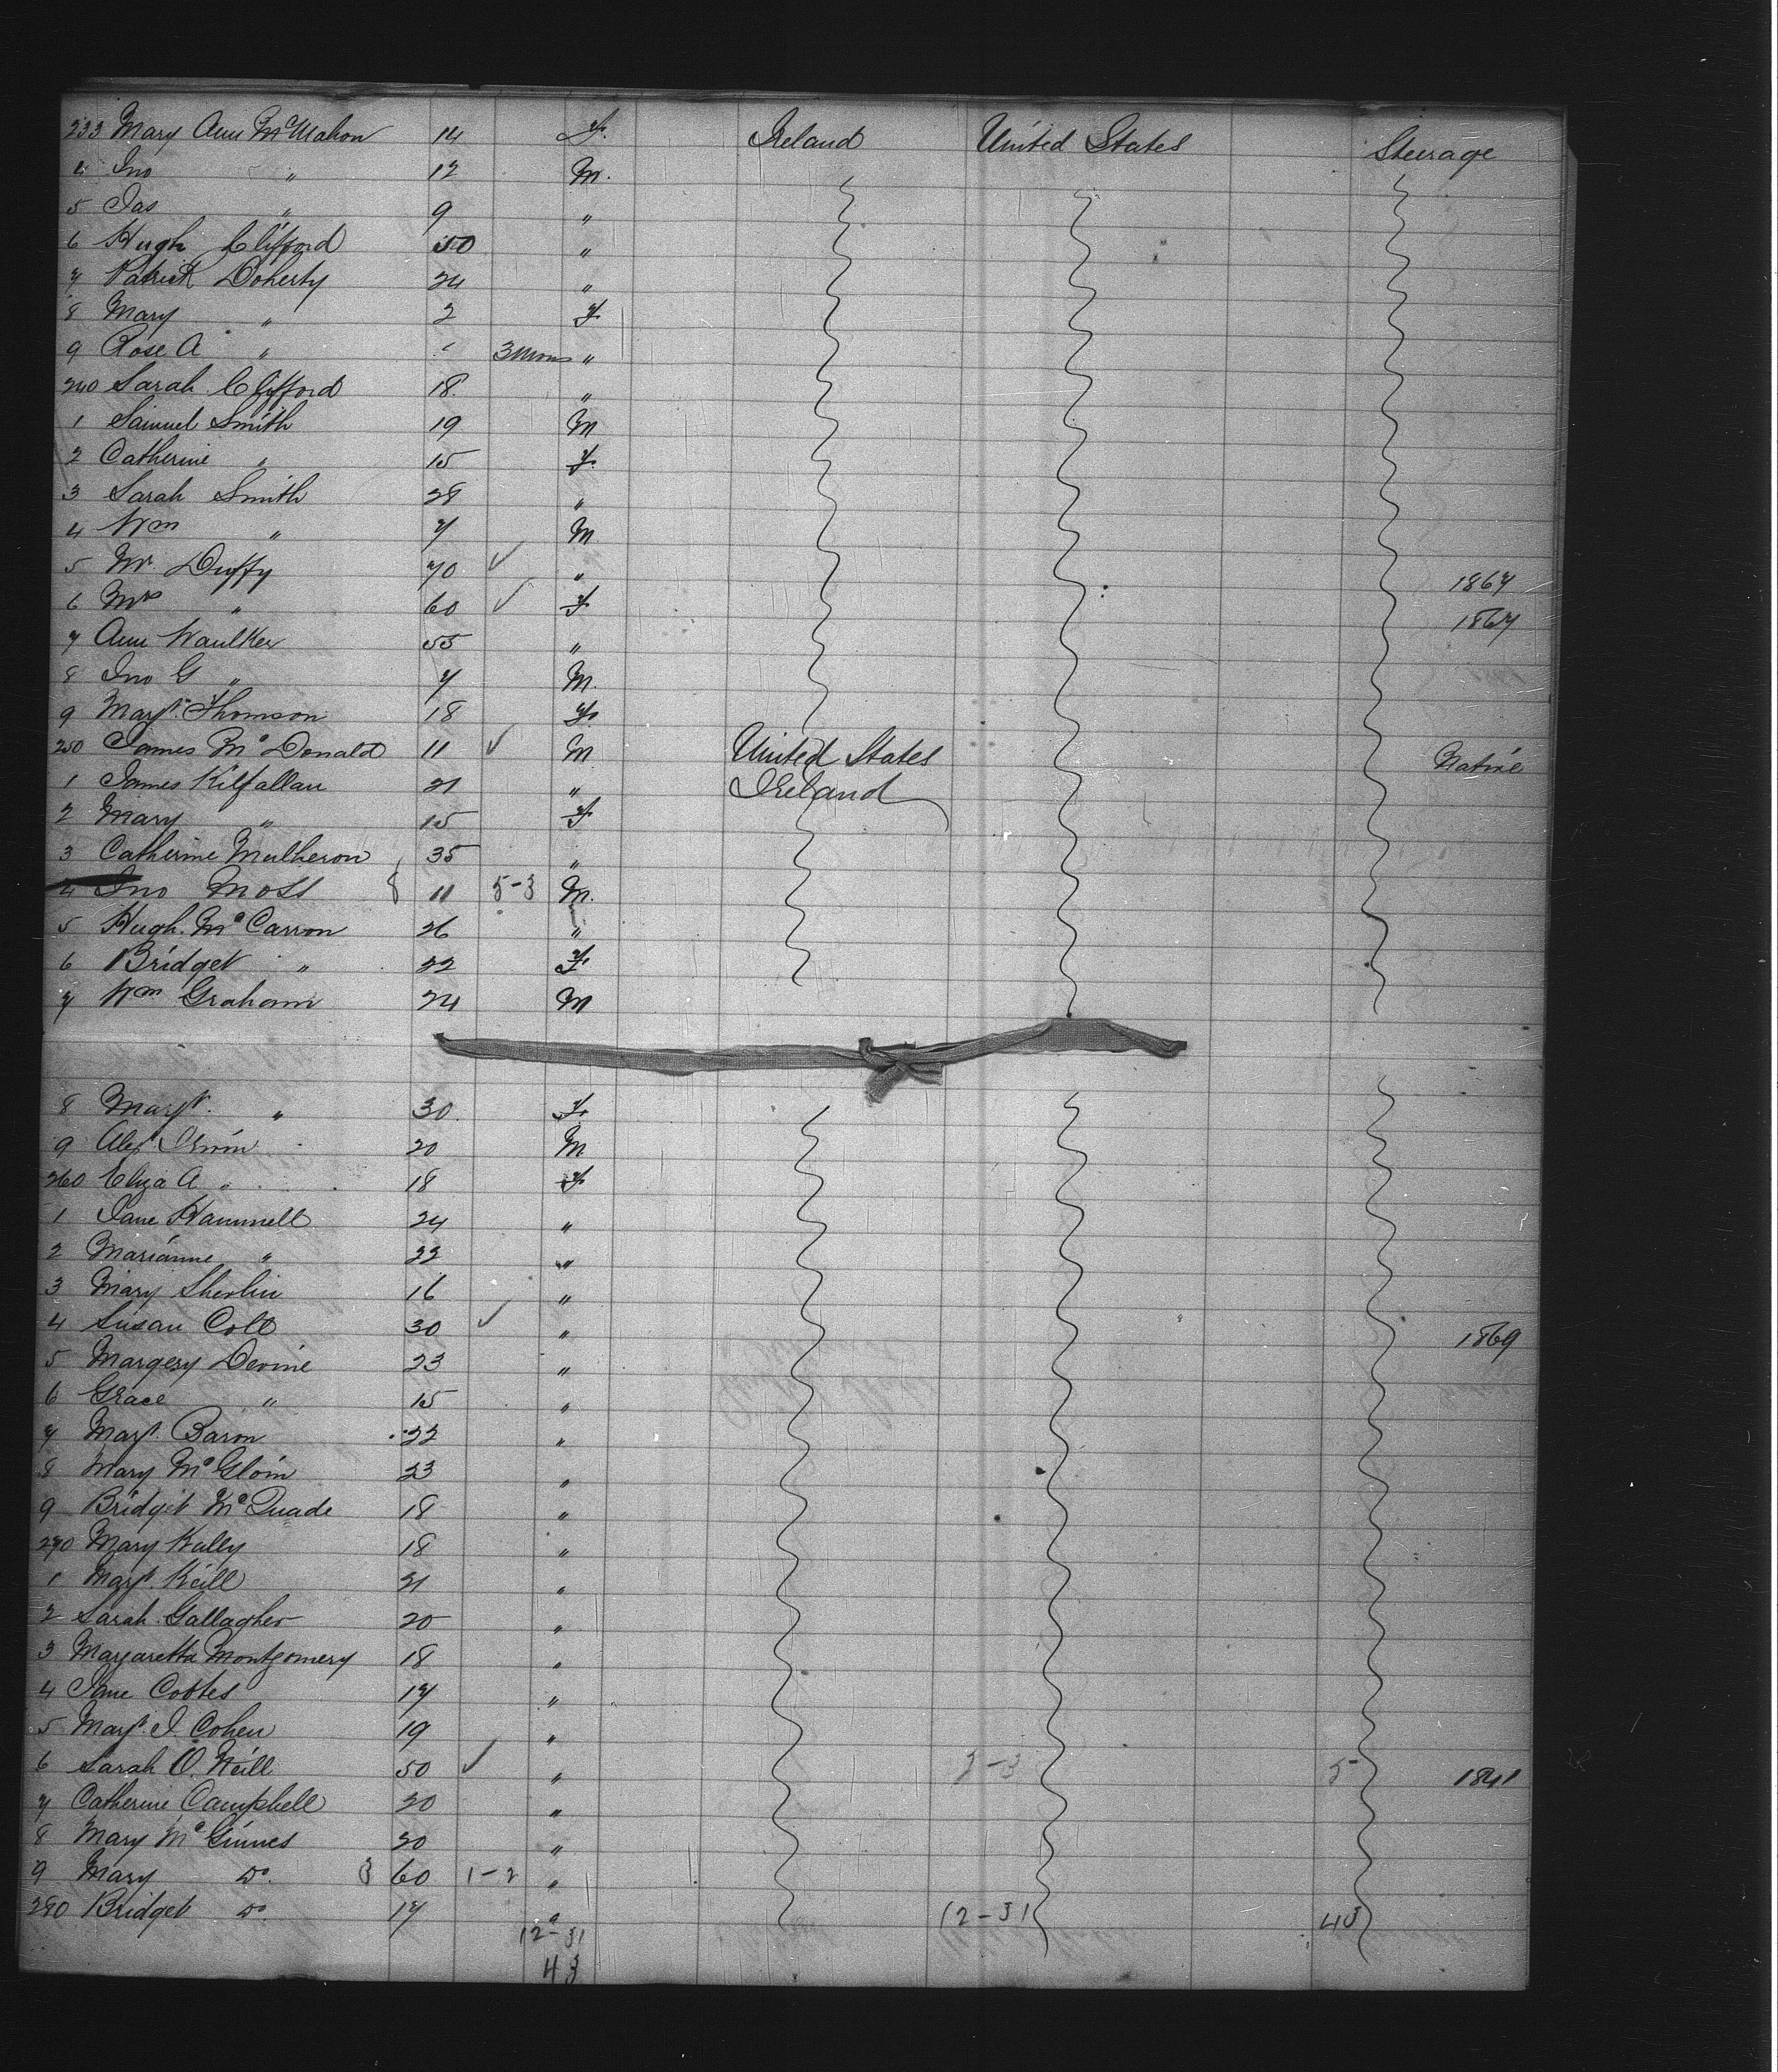 233 Mary Ann McMahon 14 F. Ireland United States Steerage
4 Jno " 12 M.
5 Jas " 9 "
6 Hugh Clifford 50 "
7 Patrick Doherty 24 "
8 Mary " 2 F
9 Rose A " " 3 mons "
240 Sarah Clifford 18. "
1 Samuel Smith 19 M
2 Catherine " 15 F.
3 Sarah Smith 28 "
4 Wm " 7 M
5 Mr. Duffy 70 ✓ " 1867
6 Mrs " 60 ✓ F 1867
7 Ann Waulker 55 "
8 Jno G " 7 M.
9 Margt. Thomson 18 F.
250 James McDonald 11 ✓ M United States Native
1 James Kilfallan 21 " Ireland
2 Mary " 15 F
3 Catherine Mulheron 35 "
4 Jno Moss 8 11 5-3 M.
5 Hugh McCarron 26 "
6 Bridget " 22 F
7 Wm Graham 24 M
8 Margt. " 30 F.
9 Alex Irwin 20 M
260 Eliza A " 18 F
1 Jane Hammell 24 "
2 Marianne " 22 "
3 Mary Sherlin 16 "
4 Susan Coll 30 ✓ " 1869
5 Margery Devine 23 "
6 Grace " 15 "
7 Margt. Baron 22 "
8 Mary McGloin 23 "
9 Bridget McQuade 18 "
270 Mary Kelly 18 "
1 Margt. Keill 21 "
2 Sarah Gallagher 20 "
3 Margaretta Montgomery 18 "
4 Jane Cobtes 17 "
5 Margt. J. Cohen 19 "
6 Sarah O'Neill 50 ✓ " 3-3 5 1841
7 Catherine Campbell 20 "
8 Mary McGinnes 20 "
9 Mary Do. 3 60 1-2 "
280 Bridget Do. 17 " 12-31 43
12-31
43